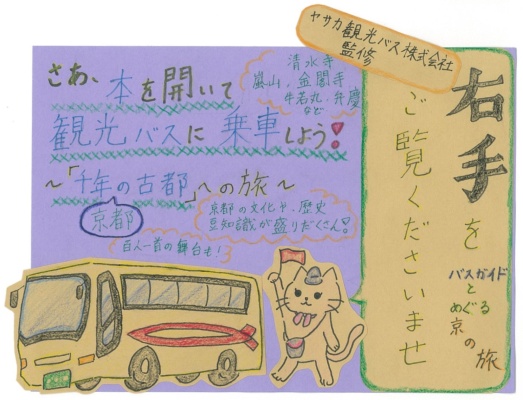 ヤサカ観光バス株式会社
監修
右手を
ご覧くださいませ
バスガイド
と
めぐる
京の
旅
さあ、本を開いて
観光バスに乗車しよう!
〜「千年の古都」への旅〜
京都
清水寺
嵐山、金閣寺
牛若丸・弁慶
など
京都の文化や、歴史
豆知識が盛りだくさん!
百人一首の舞台も!